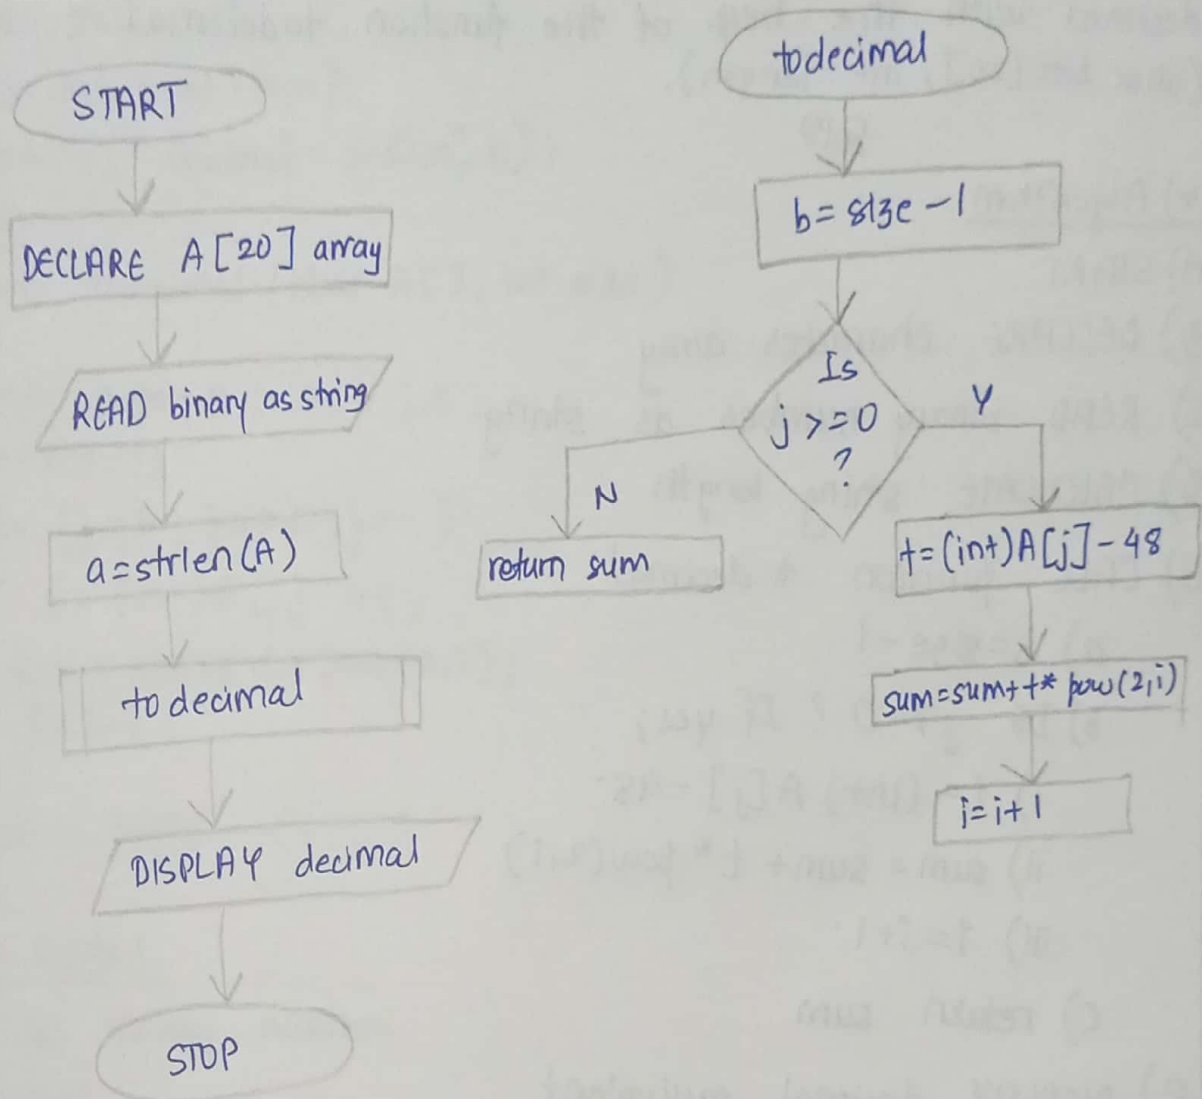 START
DECLARE A[20] array
READ binary as string
a=strlen(A)
to decimal
DISPLAY decimal
STOP
todecimal
b=size-1
Is
j>=0
?
Y
N
return sum
t=(int)A[j]-48
sum=sum+t*pow(2,i)
i=i+1